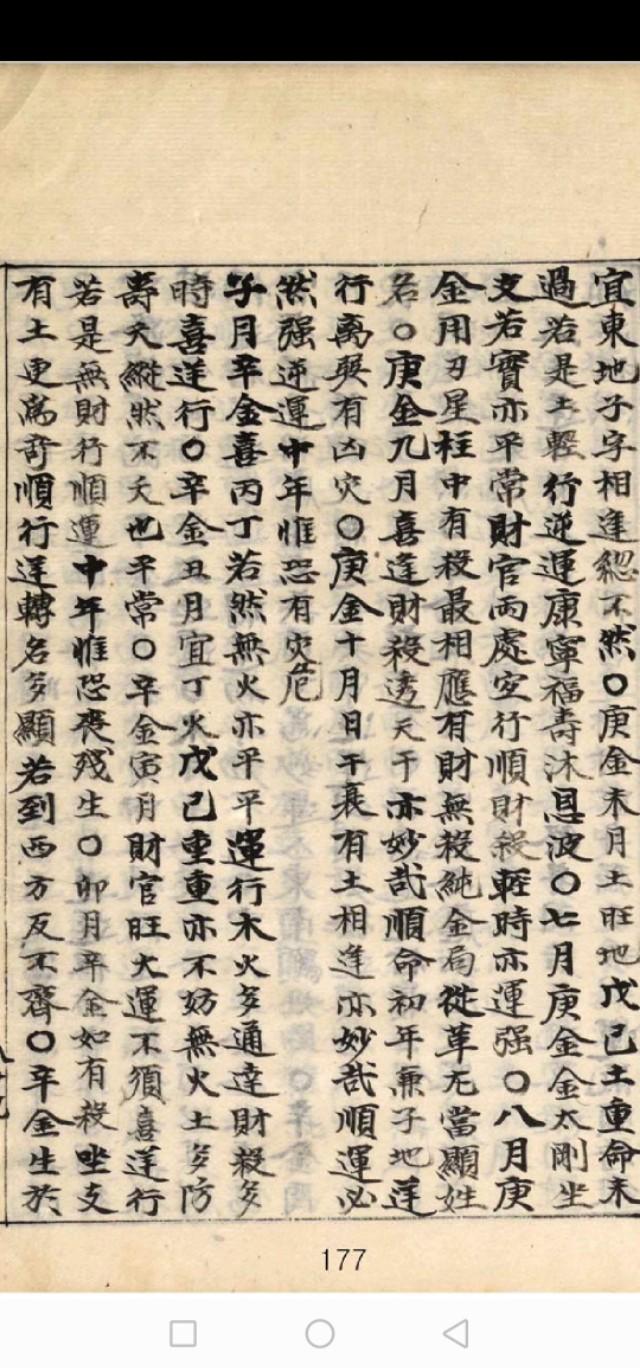 宜東地子字相逢緫不然○庚金未月土旺地戊己土重命未
過若是土輕行逆運康寧福壽沐恩波○七月庚金金太剛坐
支若寳亦平常財官両處空行順財殺輕時亦運强○八月庚
金用刃星柱中有殺最相應有財無殺純金局從革尤當顯姓
名○庚金九月喜逢財殺透天干亦妙哉順命初年兼子地逆
行离巽有凶灾○庚金十月日干衰有土相逢亦妙哉順運必
然强逆運中年惟恐有灾危
子月辛金喜丙丁若然無火亦平平運行木火多通達財殺多
時喜逆行○辛金丑月宜丁火戊己重重亦不妨無火土多防
壽夭縱然不夭也平常○辛金寅月財官旺大運不須喜逆行
若是無財行順運中年惟恐喪残生○卯月辛金如有殺坐支
有土更爲竒順行逆轉名多顯若到西方反不齊○辛金生於
177